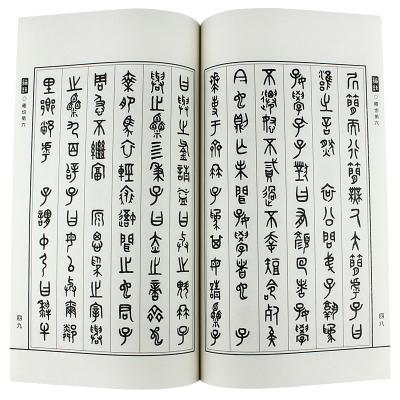 論語
○雍也第六
居簡而行簡無乃大簡乎子曰
雍之言然 哀公問弟子孰爲
好學孔子對曰有顏回者好學
不遷怒不貳過不幸短命死矣
今也則亡未聞好學者也 子
華使於齊冉子爲其母請粟子
四八
曰與之釜請益曰與之庾冉子
與之粟五秉子曰赤之適齊也
乘肥馬衣輕裘吾聞之也君子
周急不繼富 原思爲之宰與
之粟九百辭子曰毋以與爾鄰
里鄉黨乎 子謂仲弓曰犁牛
論語
○雍也第六
四九